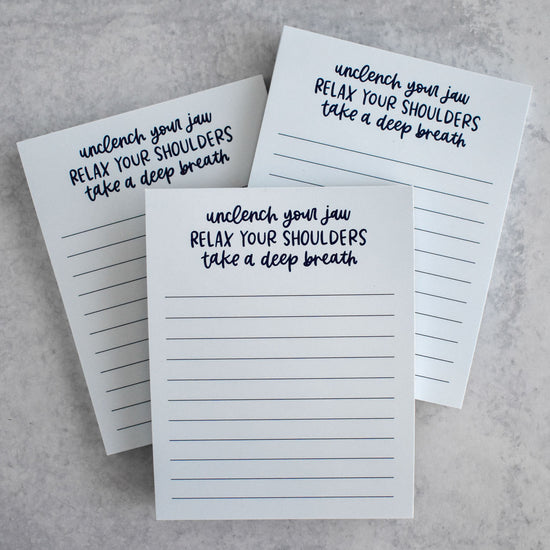 unclench your jaw
RELAX YOUR SHOULDERS
take a deep breath
unclench your jaw
RELAX YOUR SHOULDERS
take a deep breath
unclench your jaw
RELAX YOUR SHOULDERS
take a deep breath